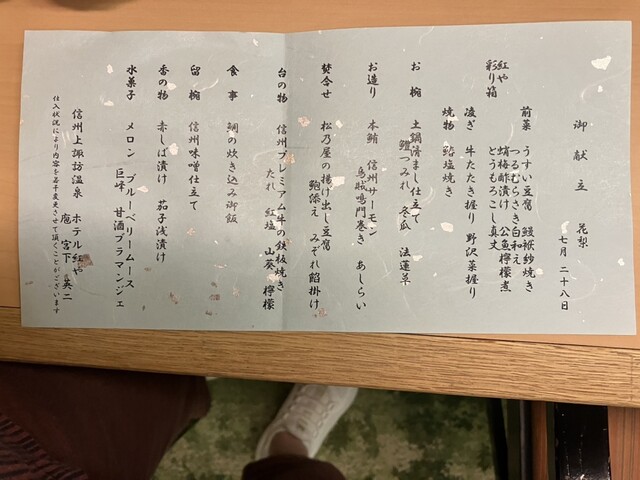 御献立 花梨
七月 二十八日
紅や
彩り箱
前菜 うすい豆腐 鰻袱紗焼き
つるむらさき白和え
蛸梅酢漬け 公魚檸檬煮
とうもろこし真丈
凌ぎ 牛たたき握り 野沢菜握り
焼物 鮎塩焼き
お椀 土鍋清まし仕立て
鱧つみれ 冬瓜 法蓮草
お造り 本鮪 信州サーモン
烏賊鳴門巻き あしらい
焚合せ 松乃屋の揚げ出し豆腐
鮑添え みぞれ餡掛け
台の物 信州プレミアム牛の鉄板焼き
たれ 紅塩 山葵 檸檬
食事 鯛の炊き込み御飯
留椀 信州味噌仕立て
香の物 赤しば漬け 茄子浅漬け
水菓子 メロン ブルーベリームース
巨峰 甘酒ブラマンジェ
信州上諏訪温泉 ホテル紅や
庵 宮下 英二
仕入状況により内容を若干変更させて頂くことがございます